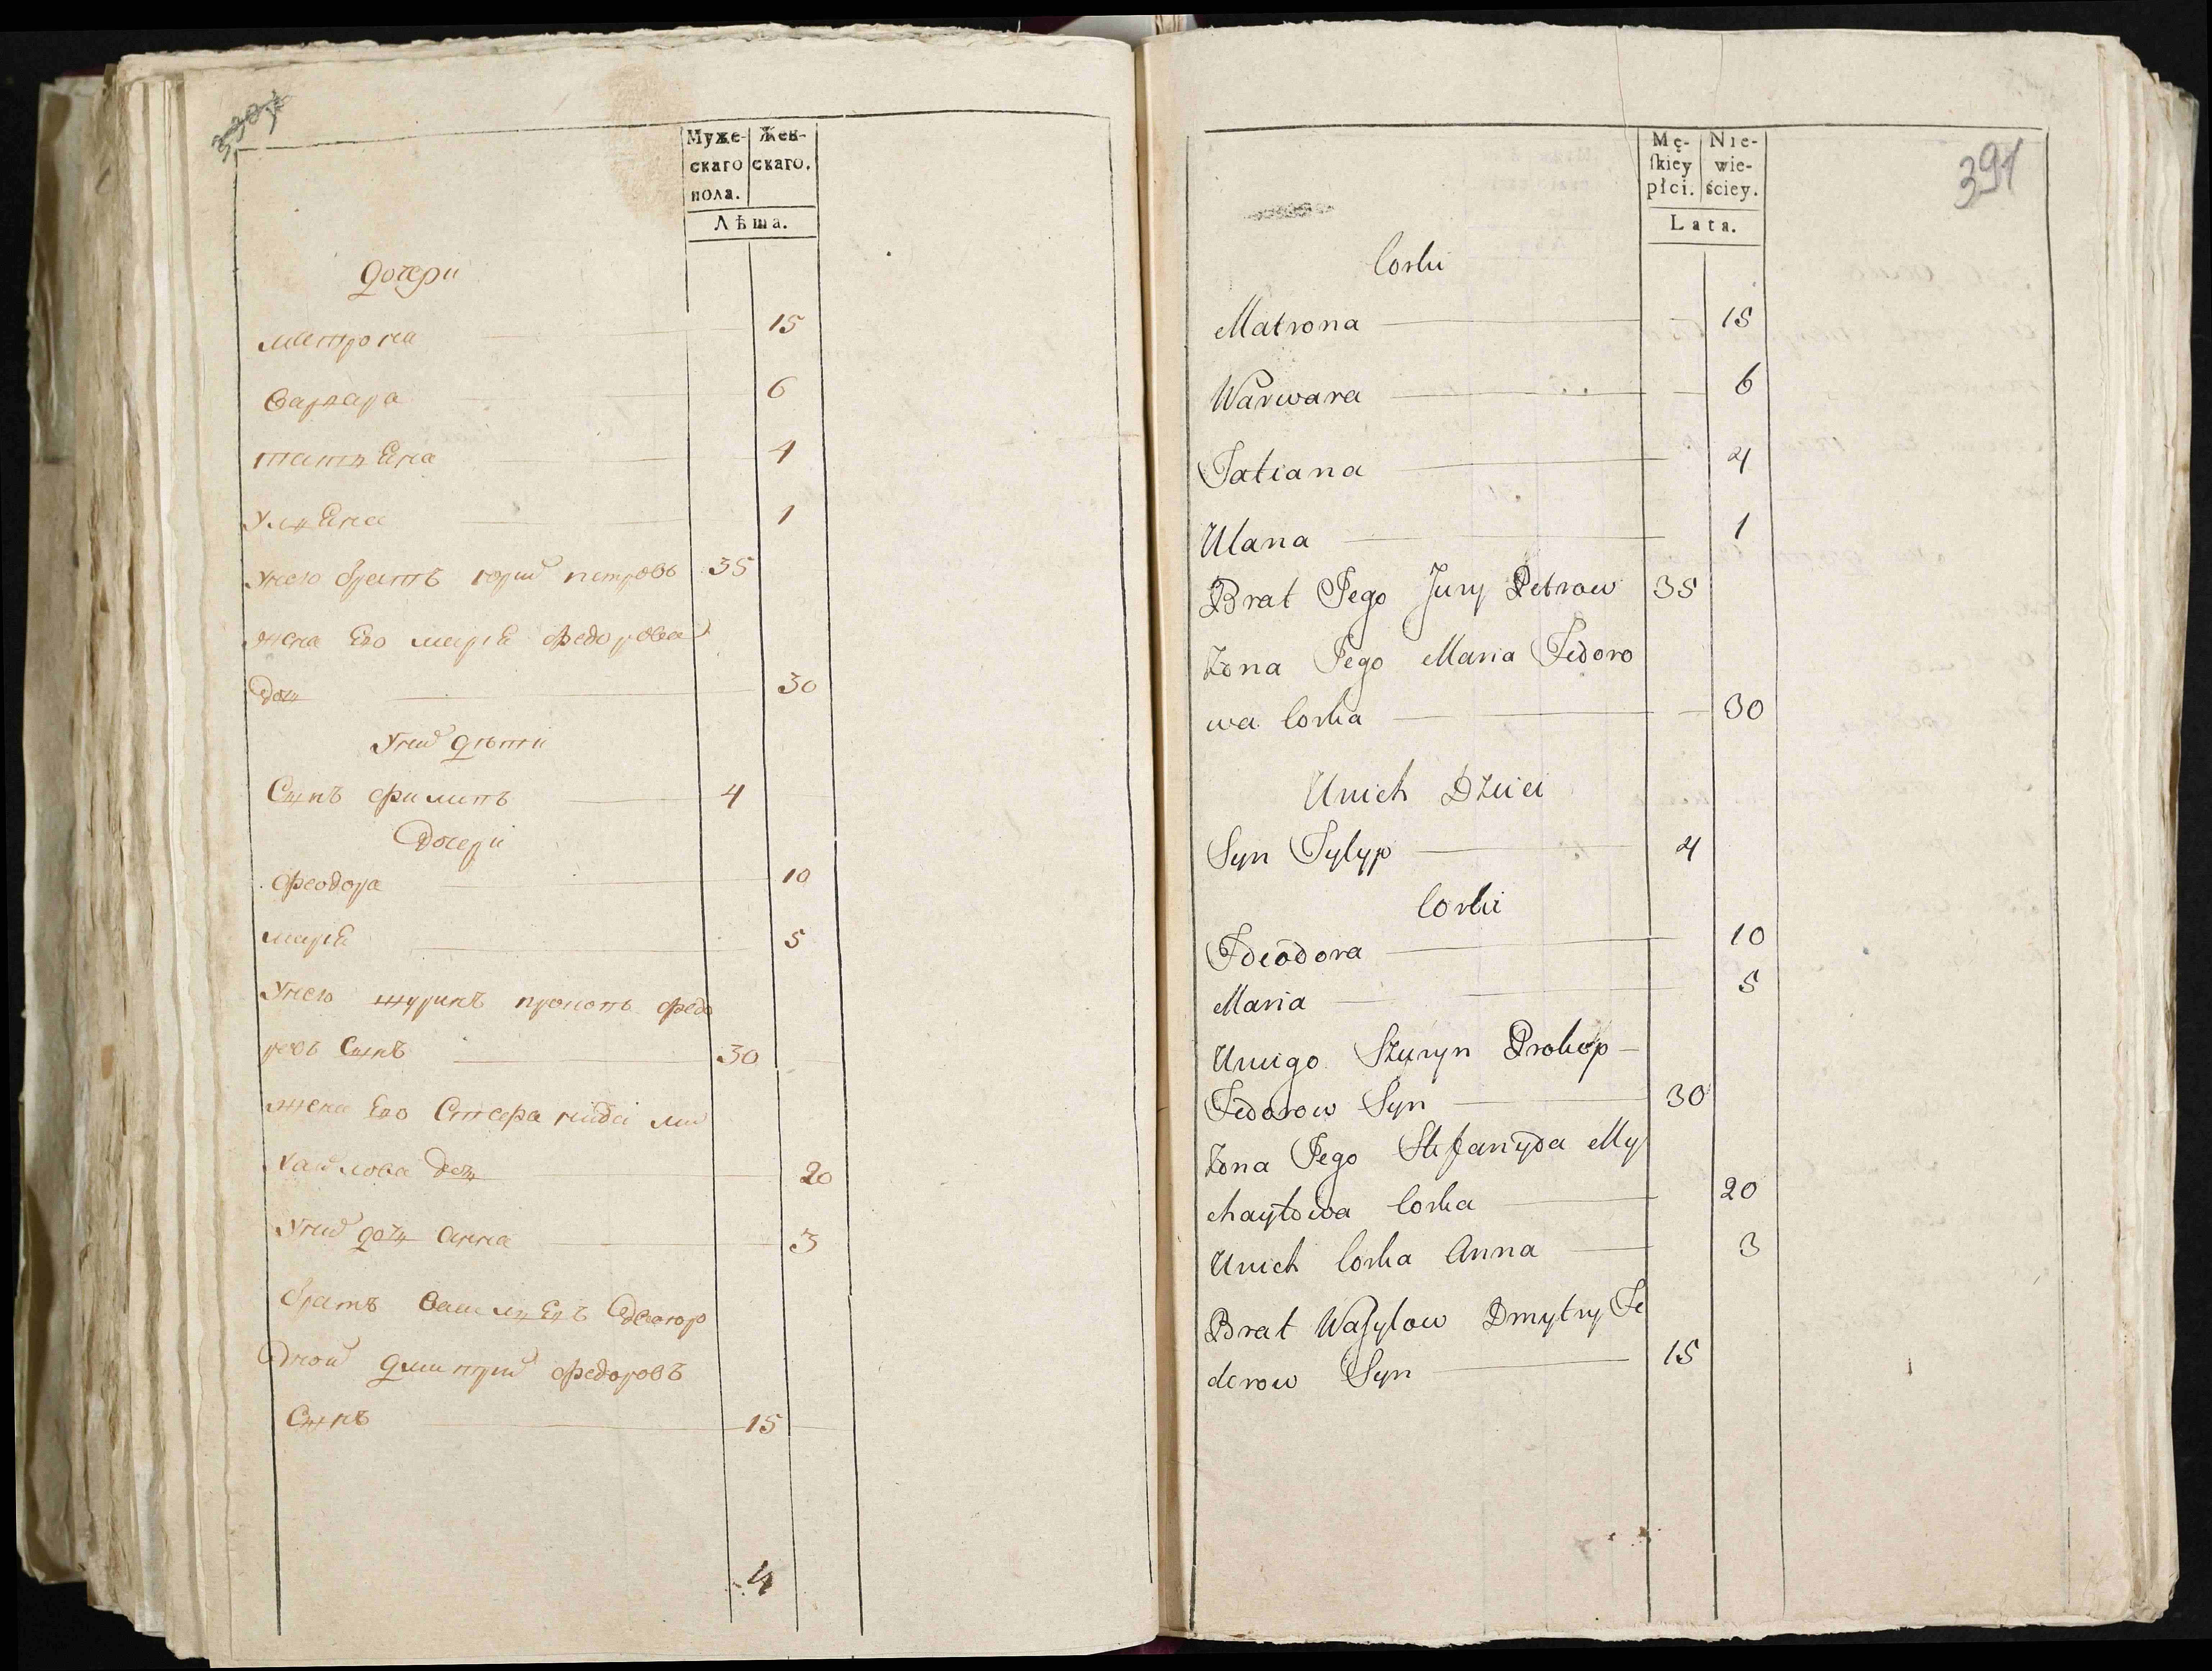 Муже-
скаго
пола.
Жен-
скаго.
Лѣта.
дочери
матрона 15
варвара 6
татиѧна 4
Улиѧна 1
Унего братъ юрий петровъ 35
жена Его мариѧ федорова
доч 30
Уних дѣти
Сынъ филипъ 4
Дочери
феодора 10
мариѧ 5
Унего шуринъ прокопъ федо
ровъ Сынъ 30
жена Его Стефанида ми
хайлова доч 20
Уних доч анна 3
братъ василиевъ двоюр
одной дмитрий федоровъ
Сынъ 15
4
391
Mę-
skiey
płci.
Nie-
wie-
ściey.
Lata.
Corki
Matrona 15
Warwara 6
Tatiana 4
Ulana 1
Brat Jego Jury Petrow 35
Żona Jego Maria Fedoro
wa Corka 30
Unich Dzieci
Syn Fylyp 4
Corki
Fdeodora 10
Maria 5
Uniego Szuryn Prokop
Fedorow Syn 30
Żona Jego Stefanyda My
chayłowa Corka 20
Unich Corka Anna 3
Brat Wasylow Dmytry Fe
derow Syn 15